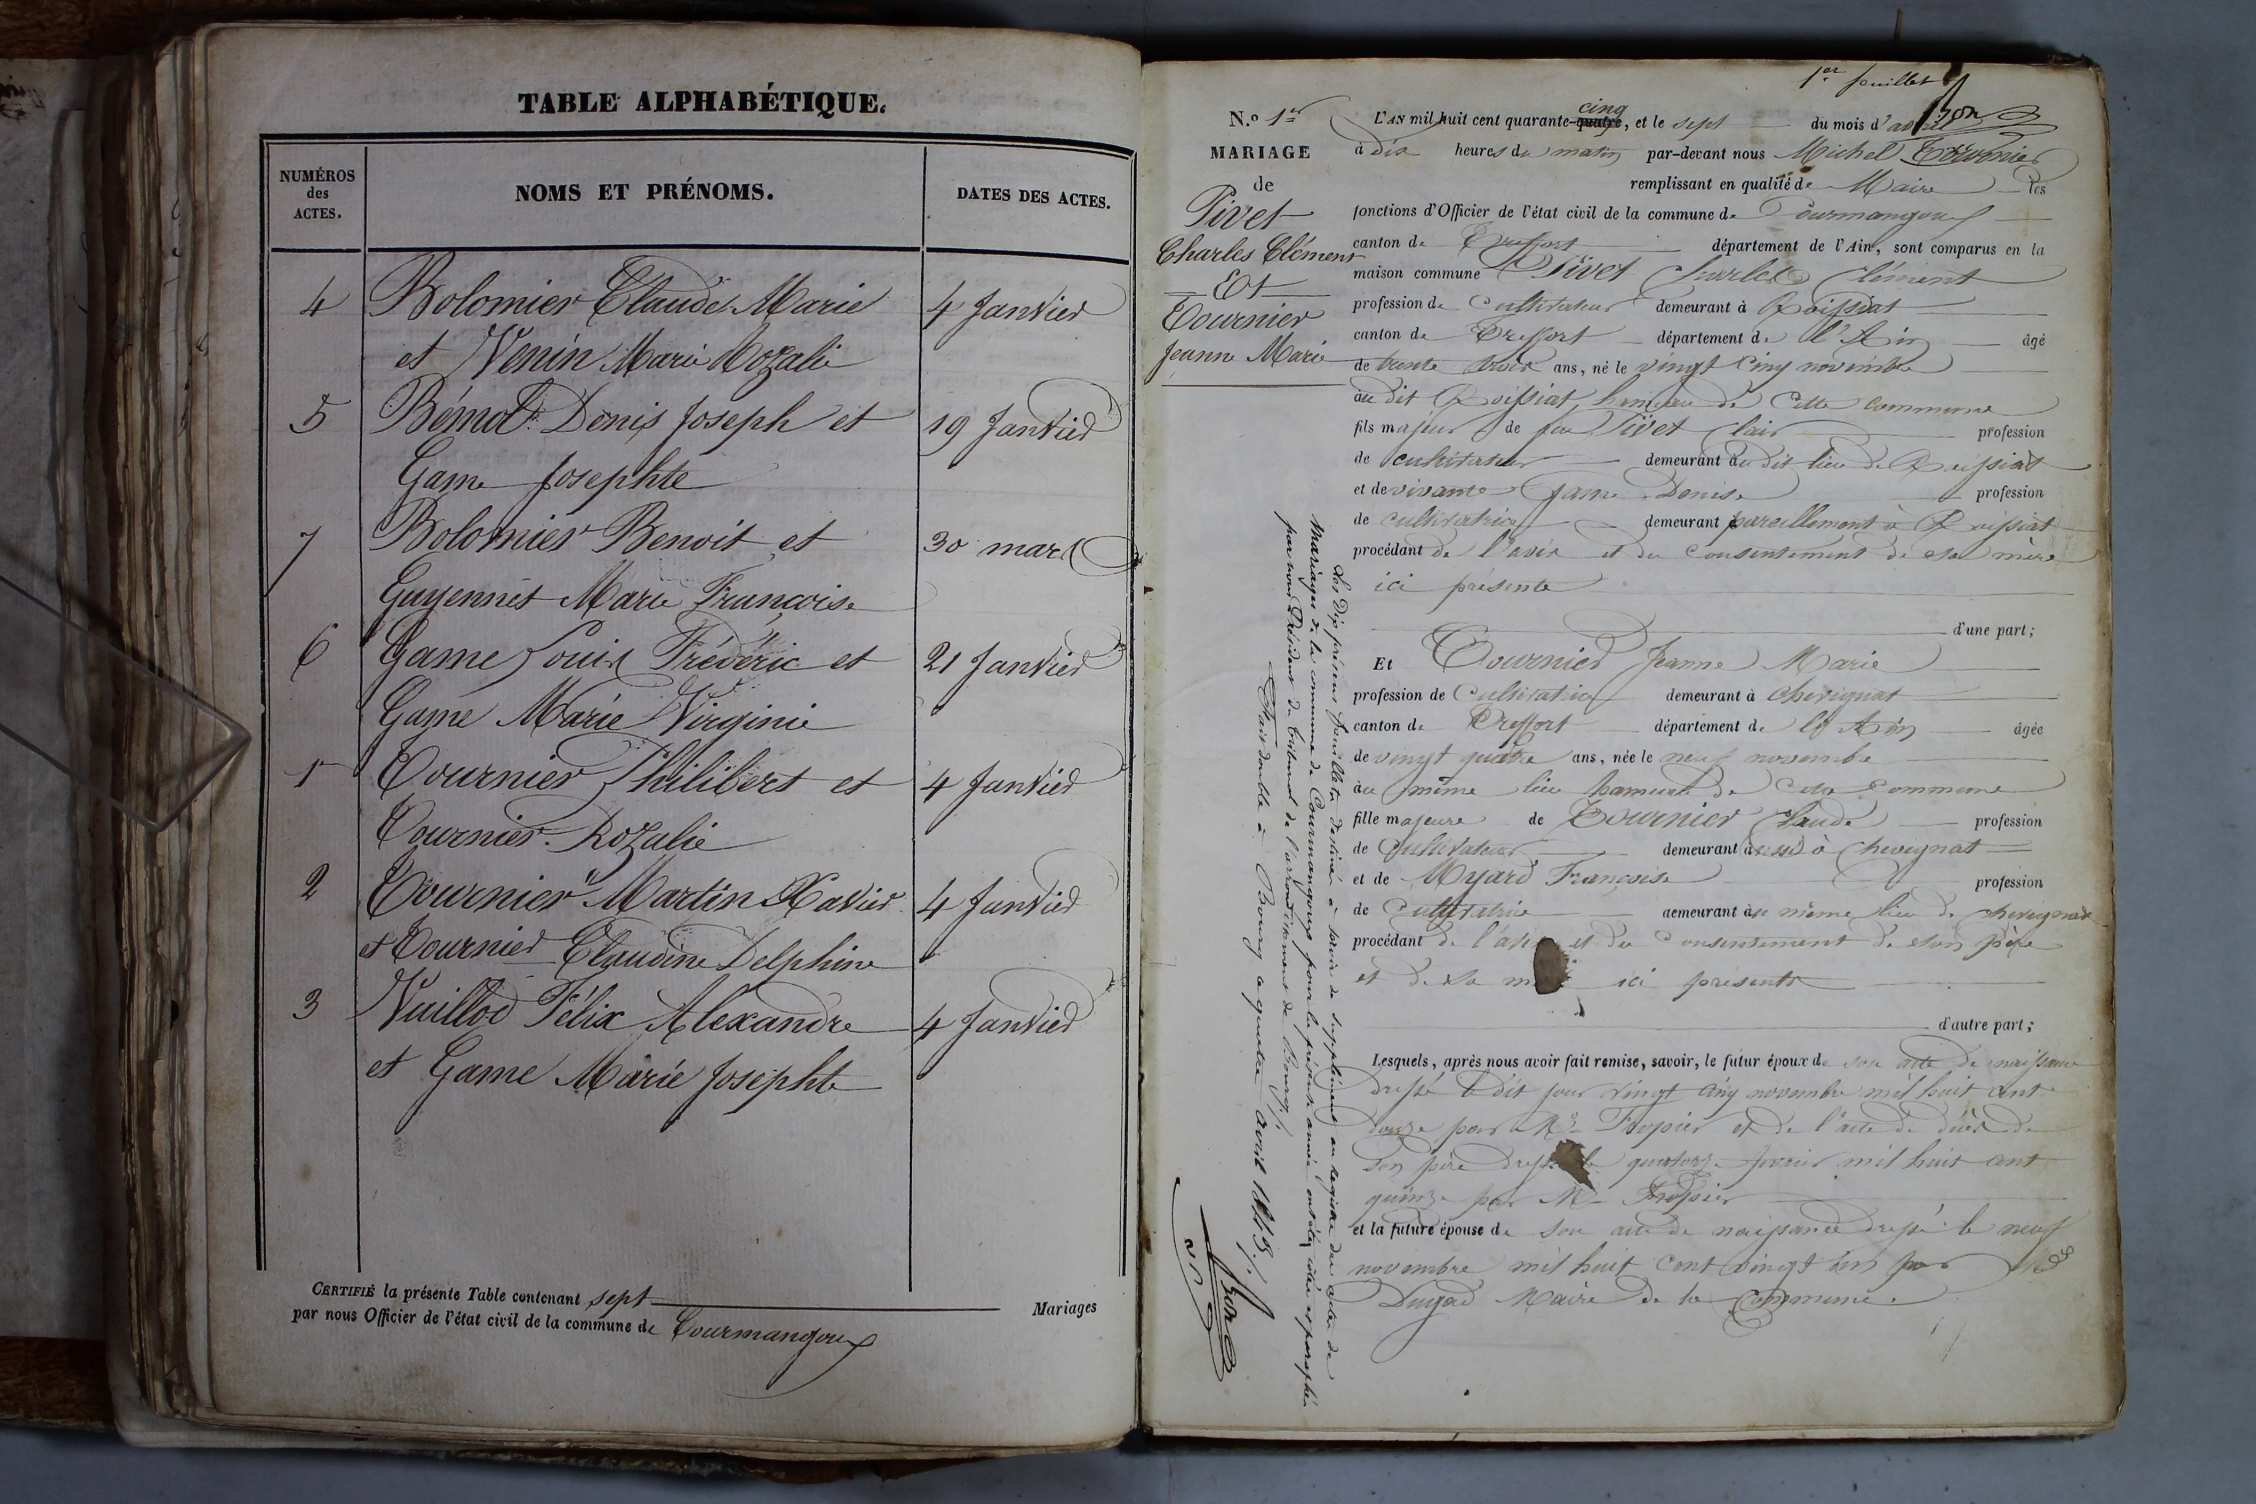 TABLE ALPHABÉTIQUE.
NUMÉROS
des
ACTES.
NOMS ET PRÉNOMS.
DATES DES ACTES.
4 Bolomier Claude Marie 4 Janvier
et Venin Marie Rozalie
5 Bémol Denis Joseph et 19 Janvier
Game Josephte
7 Bolomier Benoit et 30 mars
Guyennet Marie Françoise
6 Game Louis Frédéric et 21 Janvier
Game Marie Virginie
1 Tournier Philibert et 4 Janvier
Tournier Rozalie
2 Tournier Martin Xavier 4 Janvier
et Tournier Claudine Delphine
3 Vuillod Félix Alexandre 4 Janvier
et Game Marie Josephte
CERTIFIÉ la présente Table contenant sept Mariages
par nous Officier de l'état civil de la commune de Courmangoux
1er feuillet
N.o 1er
MARIAGE
de
Pivet
Charles Clément
Et
Tournier
Jeanne Marie
L'AN mil huit cent quarante-quatre cinq, et le sept du mois d'avril
à dix heures du matin par-devant nous Michel Tournier
remplissant en qualité de Maire les
fonctions d'Officier de l'état civil de la commune de Courmangoux
canton de Treffort département de l'Ain, sont comparus en la
maison commune Pivet Charles Clément
profession de Cultivateur demeurant à Roissiat
canton de Treffort département de l'Ain âgé
de trente trois ans, né le vingt cinq novembre
au dit Roissiat, hameau de cette commune
fils majeur de feu Pivet Clair profession
de cultivateur demeurant au dit lieu de Roissiat
et de vivante Game Denise profession
de cultivatrice demeurant à pareillement à Roissiat
procédant de l'avis et du consentement de sa mère
ici présente
d'une part;
Et Tournier Jeanne Marie
profession de Cultivatrice demeurant à Chevignat
canton de Treffort département de l'Ain âgée
de vingt quatre ans, née le neuf novembre
au même lieu hameau de cette commune
fille majeure de Tournier Claude profession
de Cultivateur demeurant aussi à Chevignat
et de Myard Françoise profession
de Cultivatrice demeurant au même lieu de Chevignat
procédant de l'avis et du consentement de son père
et de sa ici présents
d'autre part;
Lesquels, après nous avoir fait remise, savoir, le futur époux de son acte de naissance
dressé le dit jour vingt cinq novembre mil huit cent
par Mr et de l'acte de décès de
son père quatorze mil huit cent
quinze par Mr
et la future épouse de son acte de naissance dressé le neuf
novembre mil huit cent vingt un par
Maire de la Commune.
Les dix présens feuillets destinés à servir de supplément au registre des actes de
Mariages de la commune de Courmangoux pour la présente année ont été cotés et paraphés
par nous Président du tribunal de l'arrondissement de Bourg,
Fait double à Bourg ce avril 1845.